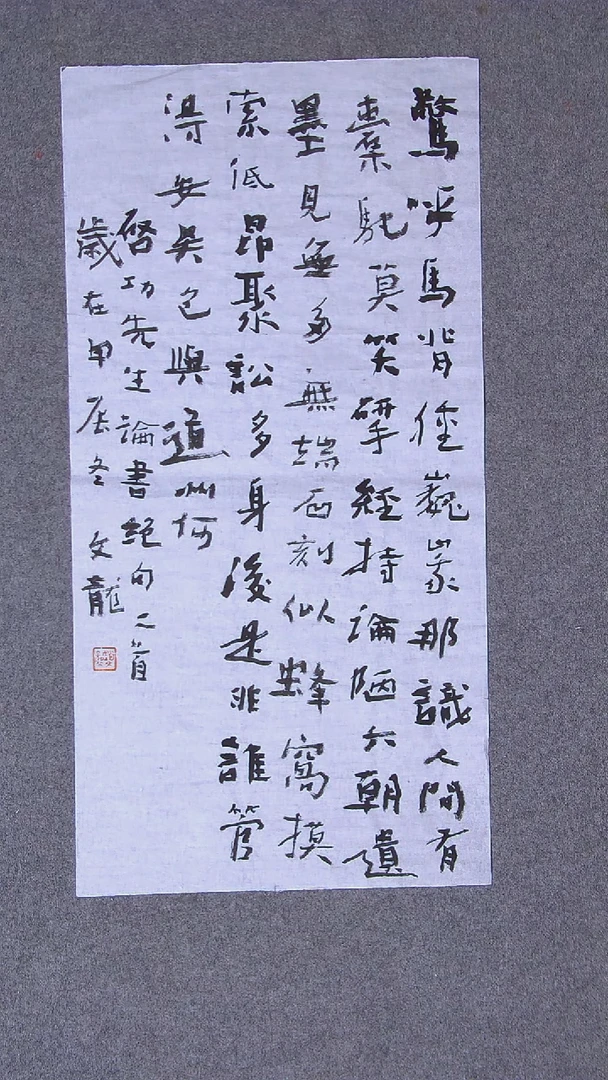 驚呼馬背腫巍峩那識人間有
橐駝莫笑揅經持論陋六朝遺
墨見無多無端石刻似蜂窩摸
索低昂聚訟多身後是非誰管
得安吳包與道州何
啓功先生論書絕句二首
歲在甲辰冬 文龍